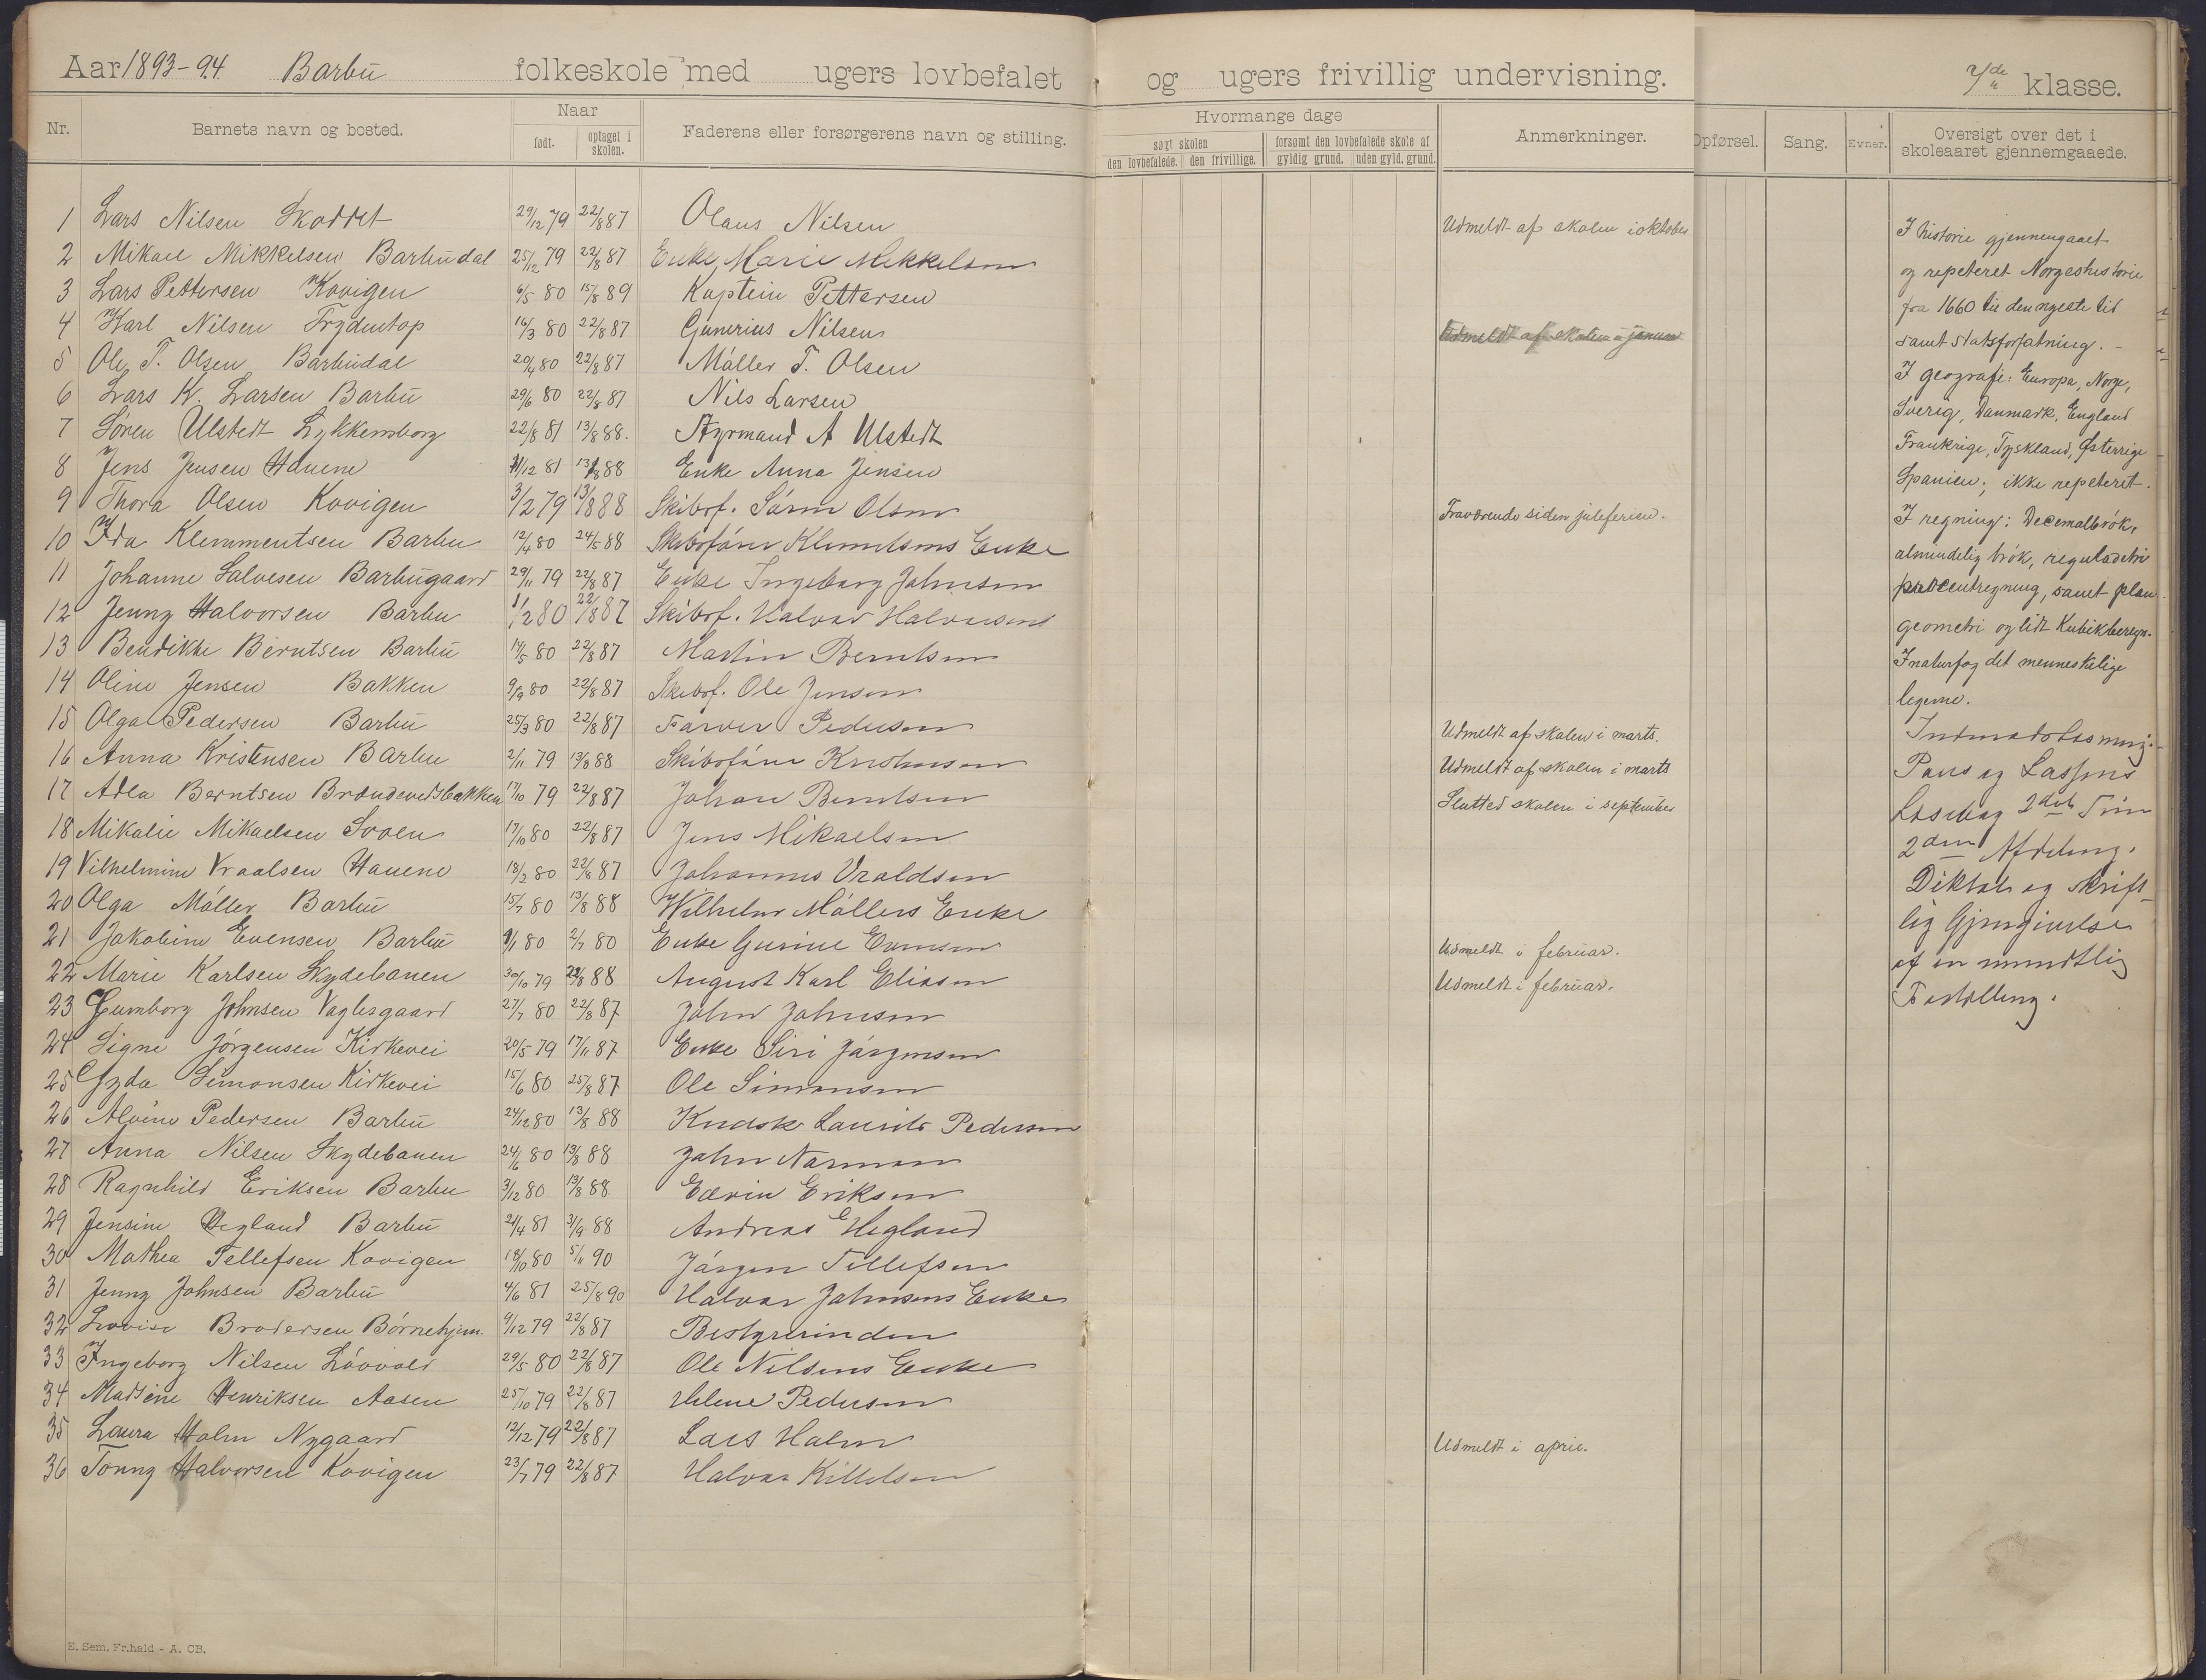 Aar 1893-94 Barbu folkeskole med ugers lovbefalet og ugers frivillig undervisning. 7de klasse.
Nr. Barnets navn og bosted. Naar født. optaget i skolen. Faderens eller forsørgerens navn og stilling. Hvormange dage søgt skolen den lovbefalede. den frivillige. forsømt den lovbefalede skole af gyldig grund. uden gyld. grund. Anmerkninger. Opførsel. Sang. Evner. Oversigt over det i skoleaaret gjennemgaaede.
1 Lars Nilsen Skoddet 29/12 79 22/8 87 Olaus Nilsen Udmeldt af skolen i oktober
2 Mikael Mikkelsen Barbudal 25/12 79 22/8 87 Enke Marie Mikkelsen
3 Lars Pettersen Kovigen 6/5 80 15/8 89 Kaptein Pettersen
4 Karl Nilsen Frydentop 16/3 80 22/8 87 Gunerius Nilsen Udmeldt af skolen i januar
5 Ole T. Olsen Barbudal 20/4 80 22/8 87 Møller T. Olsen
6 Lars K. Larsen Barbu 29/6 80 22/8 87 Nils Larsen
7 Søren Ulstedt Lykkensborg 22/8 81 13/8 88. Styrmand A Ulstedt
8 Jens Jensen Havene 11/12 81 13/8 88 Enke Anna Jensen
9 Thora Olsen Kovigen 3/2 79 13/8 88 Skibsf. Søren Olsen Fraværende siden juleferien.
10 Ida Klemmentsen Barbu 12/4 80 24/5 88 Skibsfører Klemetsens Enke
11 Johanne Salvesen Barbugaard 29/11 79 22/8 87 Enke Ingeborg Johnsen
12 Jenny Halvorsen Barbu 1/2 80 22/8 87 Skibsf. Halvor Halvorsens
13 Bendikke Berntsen Barbu 14/5 80 22/8 87 Martin Berntsen
14 Oline Jensen Bakken 9/9 80 22/8 87 Skibsf. Ole Jensen
15 Olga Pedersen Barbu 25/3 80 22/8 87 Farver Pedersen Udmeldt af skolen i marts.
16 Anna Kristensen Barbu 2/11 79 13/8 88 Skibsfører Kristensen Udmeldt af skolen i marts
17 Adla Berntsen Brændevedsbakken 17/10 79 22/8 87 Johan Berntsen Slutted skolen i september
18 Mikalie Mikaelsen Sooen 17/10 80 22/8 87 Jens Mikaelsen
19 Vilhelmine Vraalsen Havene 18/2 80 22/8 87 Johannes Vraldsen
20 Olga Møller Barbu 15/7 80 13/8 88 Wilhelm Møllers Enke
21 Jakobine Evensen Barbu 9/1 80 2/7 80 Enke Gurine Evensen Udmeldt i februar.
22 Marie Karlsen Skydebanen 30/10 79 22/8 88 August Karl Eliasen Udmeldt i februar.
23 Gumborg Johnsen Vaglesgaard 27/7 80 22/8 87 John Johnsen
24 Signe Jørgensen Kirkevei 20/5 79 17/11 87 Enke Siri Jørgensen
25 Gyda Simonsen Kirkevei 15/6 80 25/8 87 Ole Simonsen
26 Alvine Pedersen Barbu 24/12 80 13/8 88 Kudsk Laurits Pedersen
27 Anna Nilsen Skydebanen 24/6 80 13/8 88 John Narman
28 Ragnhild Eriksen Barbu 3/12 80 13/8 88 Edvin Eriksen
29 Jensine Hegland Barbu 21/4 81 3/9 88 Andreas E Hegland
30 Mathea Tellefsen Kovigen 18/10 80 5/11 90 Jørgen Tellefsen
31 Jenny Johnsen Barbu 4/6 81 25/8 90 Halvor Johnsens Enke
32 Lovise Brodersen Børnehjem. 9/12 79 22/8 87 Bestyrerinden
33 Ingeborg Nilsen Løvvold 29/5 80 22/8 87 Ole Nilsens Enke
34 Madsine Henriksen Aasen 25/10 79 22/8 87 Helene Pedersen
35 Laura Holm Nygaard 12/12 79 22/8 87 Lars Holm Udmeldt i april.
36 Tonny Halvorsen Kovigen 23/7 79 22/8 87 Halvor Kittelsen
I historie gjennengaaet
og repeteret Norgeshistorie
fra 1660 til den nyeste tid
samt statsforfatning. -
I geografi: Europa, Norge,
Sverig, Danmark, England
Frankrige, Tyskland, Østerrige
Spanien; ikke repeteret.
I regning: Decemalbrøk,
almindelig brøk, reguladetri
procentregning, samt plan
geometri og lidt Kubikberegn.
I naturfag det menneskelige
legeme.
Indenadslæsning.
Paus og Lassens
Læsebog 2det Trin
2den Afdeling.
Diktat og skrift-
lig Gjengivelse
af en mundtlig
Fortelling.
E. Sem, Fr.hald - A. OB.